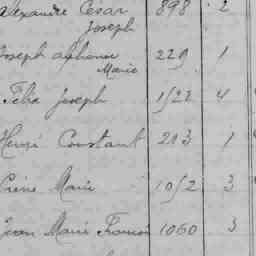 Alexandre César 898 2
Joseph
Joseph alphonse 229 1
Marie
Félix Joseph 1/22 4
Henri Constant 213 1
Marie 10/2 3
Jean Marie François 1060 3